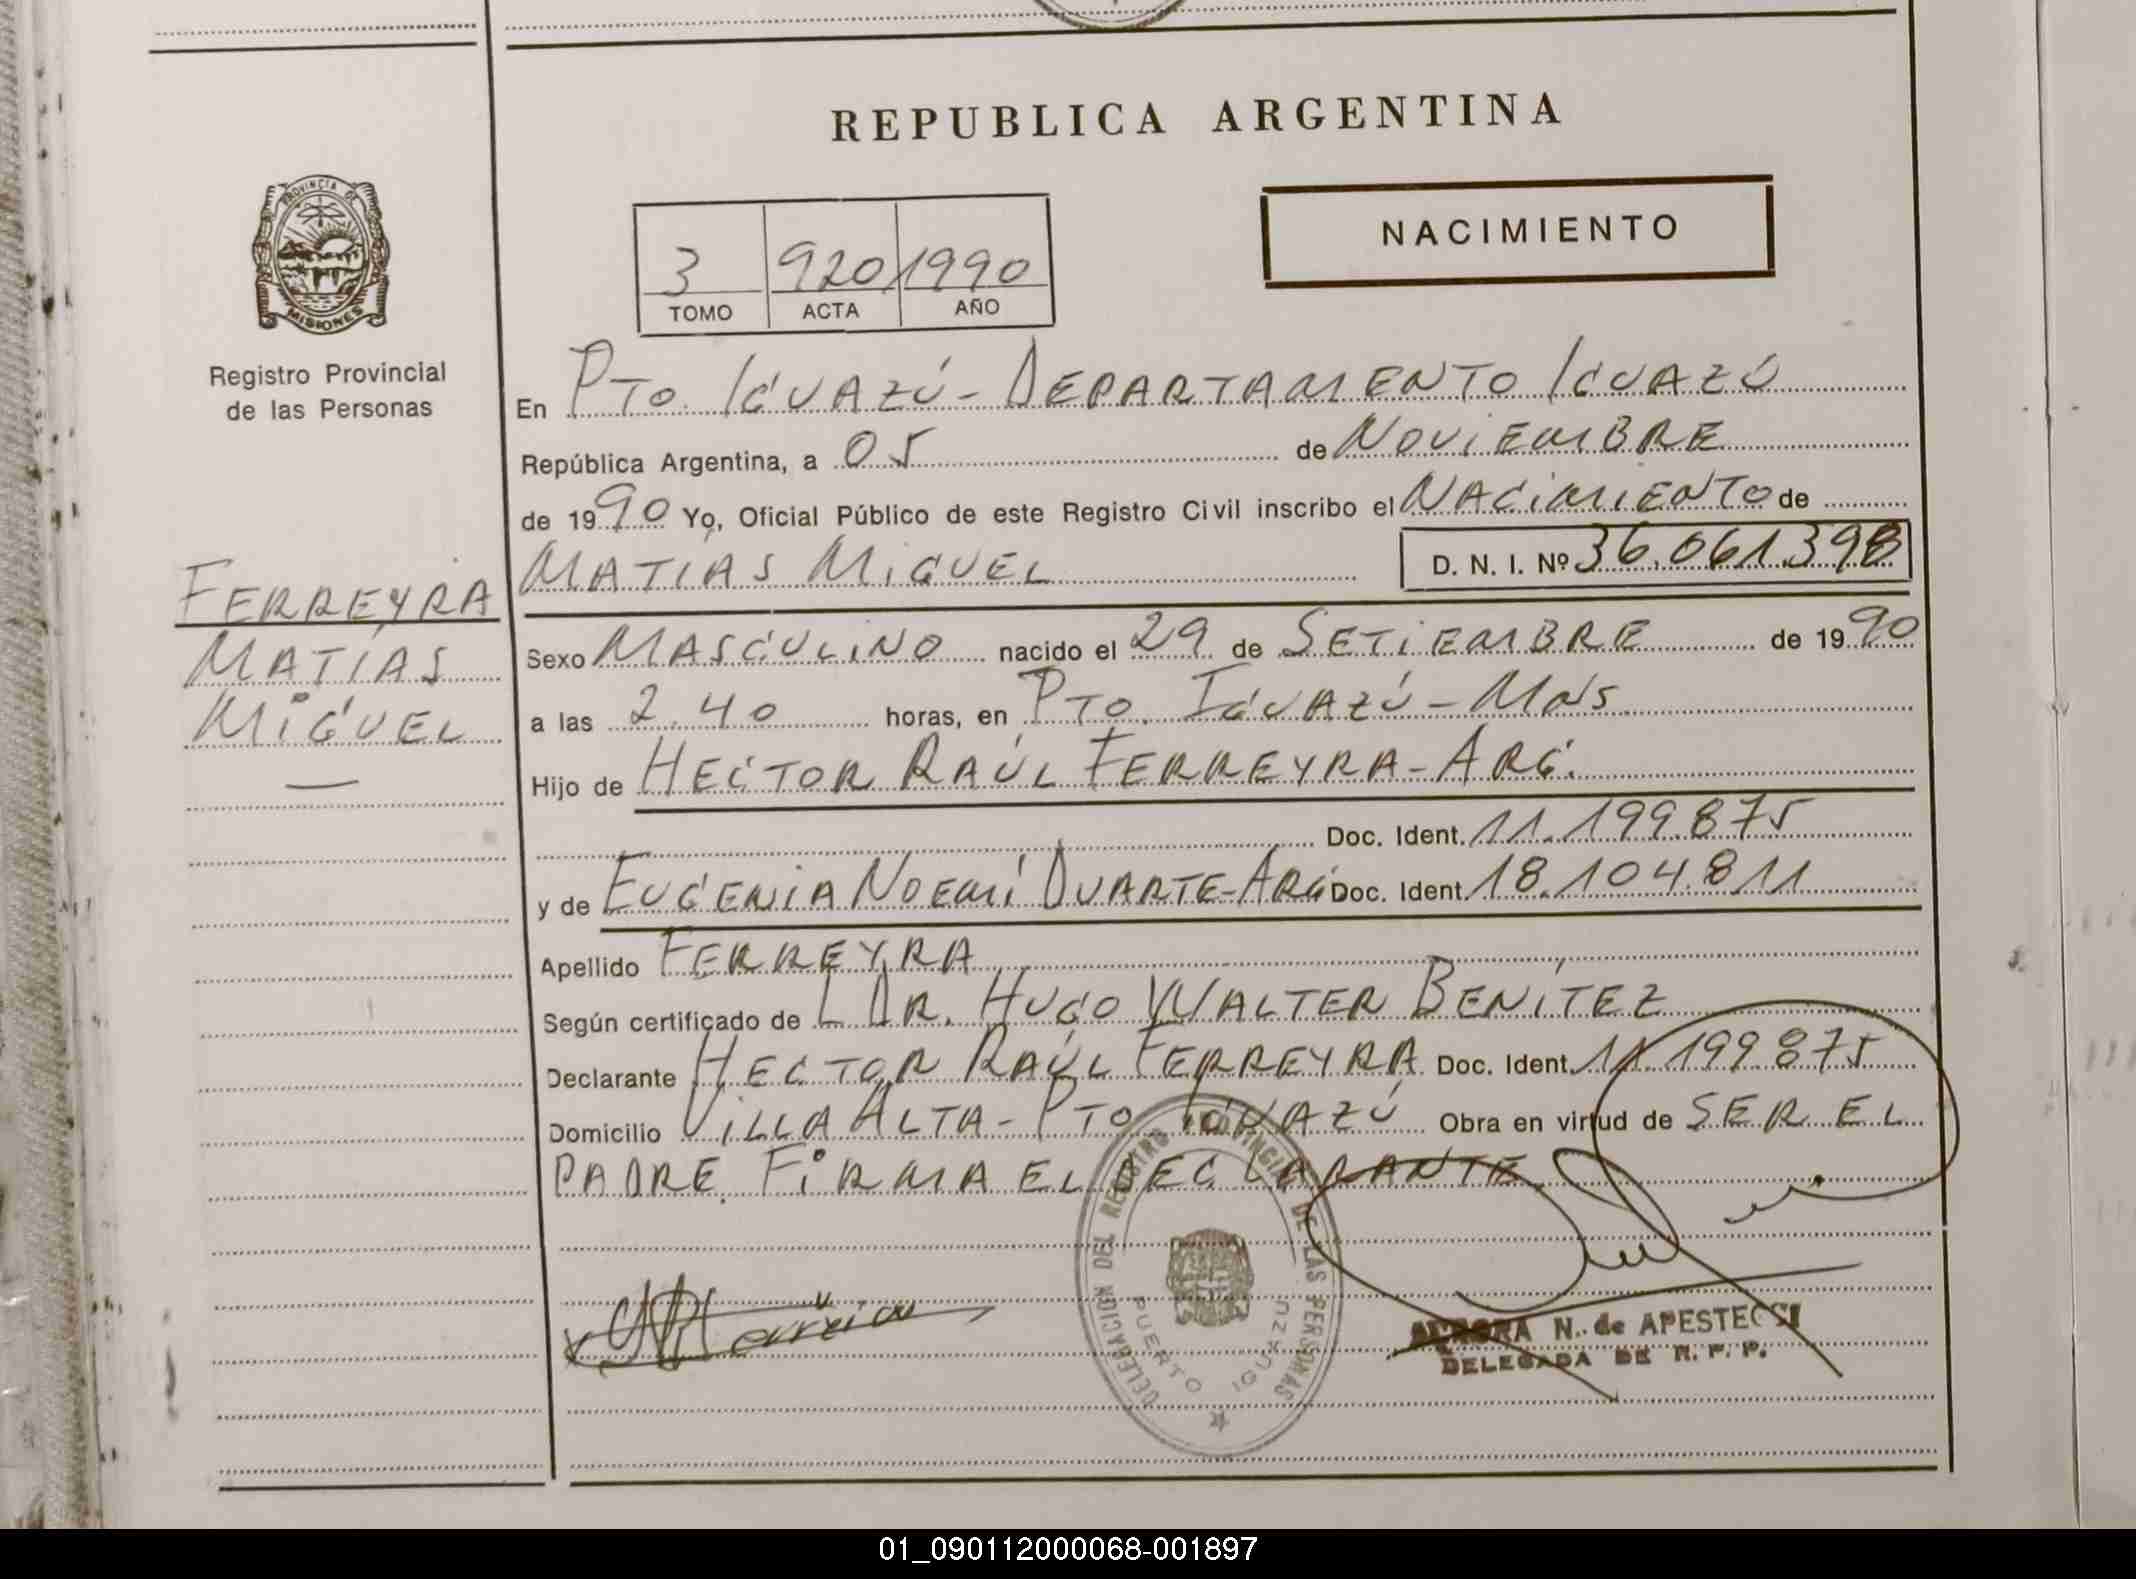 REPUBLICA ARGENTINA
NACIMIENTO
PROVINCIA DE
MISIONES
Registro Provincial
de las Personas
3 920 1990
TOMO ACTA AÑO
En PTO. IGUAZÚ - DEPARTAMENTO IGUAZÚ
República Argentina, a 05 de NOVIEMBRE
de 1990 Yo, Oficial Público de este Registro Civil inscribo el NACIMIENTO de
MATÍAS MIGUEL D. N. I. Nº 36.061.398
FERREYRA
MATÍAS
MIGUEL
—
Sexo MASCULINO nacido el 29 de SETIEMBRE de 1990
a las 2.40 horas, en PTO. IGUAZÚ - MNS
Hijo de HECTOR RAÚL FERREYRA - ARG.
Doc. Ident. 11.199.875
y de EUGENIA NOEMÍ DUARTE - ARG Doc. Ident. 18.104.811
Apellido FERREYRA
Según certificado de L DR. HUGO WALTER BENÍTEZ
Declarante HECTOR RAÚL FERREYRA Doc. Ident. 11.199.875
Domicilio VILLA ALTA - PTO. IGUAZÚ Obra en virtud de SER EL
PADRE. FIRMA EL DECLARANTE.
DELEGACION DEL REGISTRO PROVINCIAL DE LAS PERSONAS
PUERTO IGUAZU
N. de APESTEGUI
DELEGADA DE R. P. P.
01_090112000068-001897